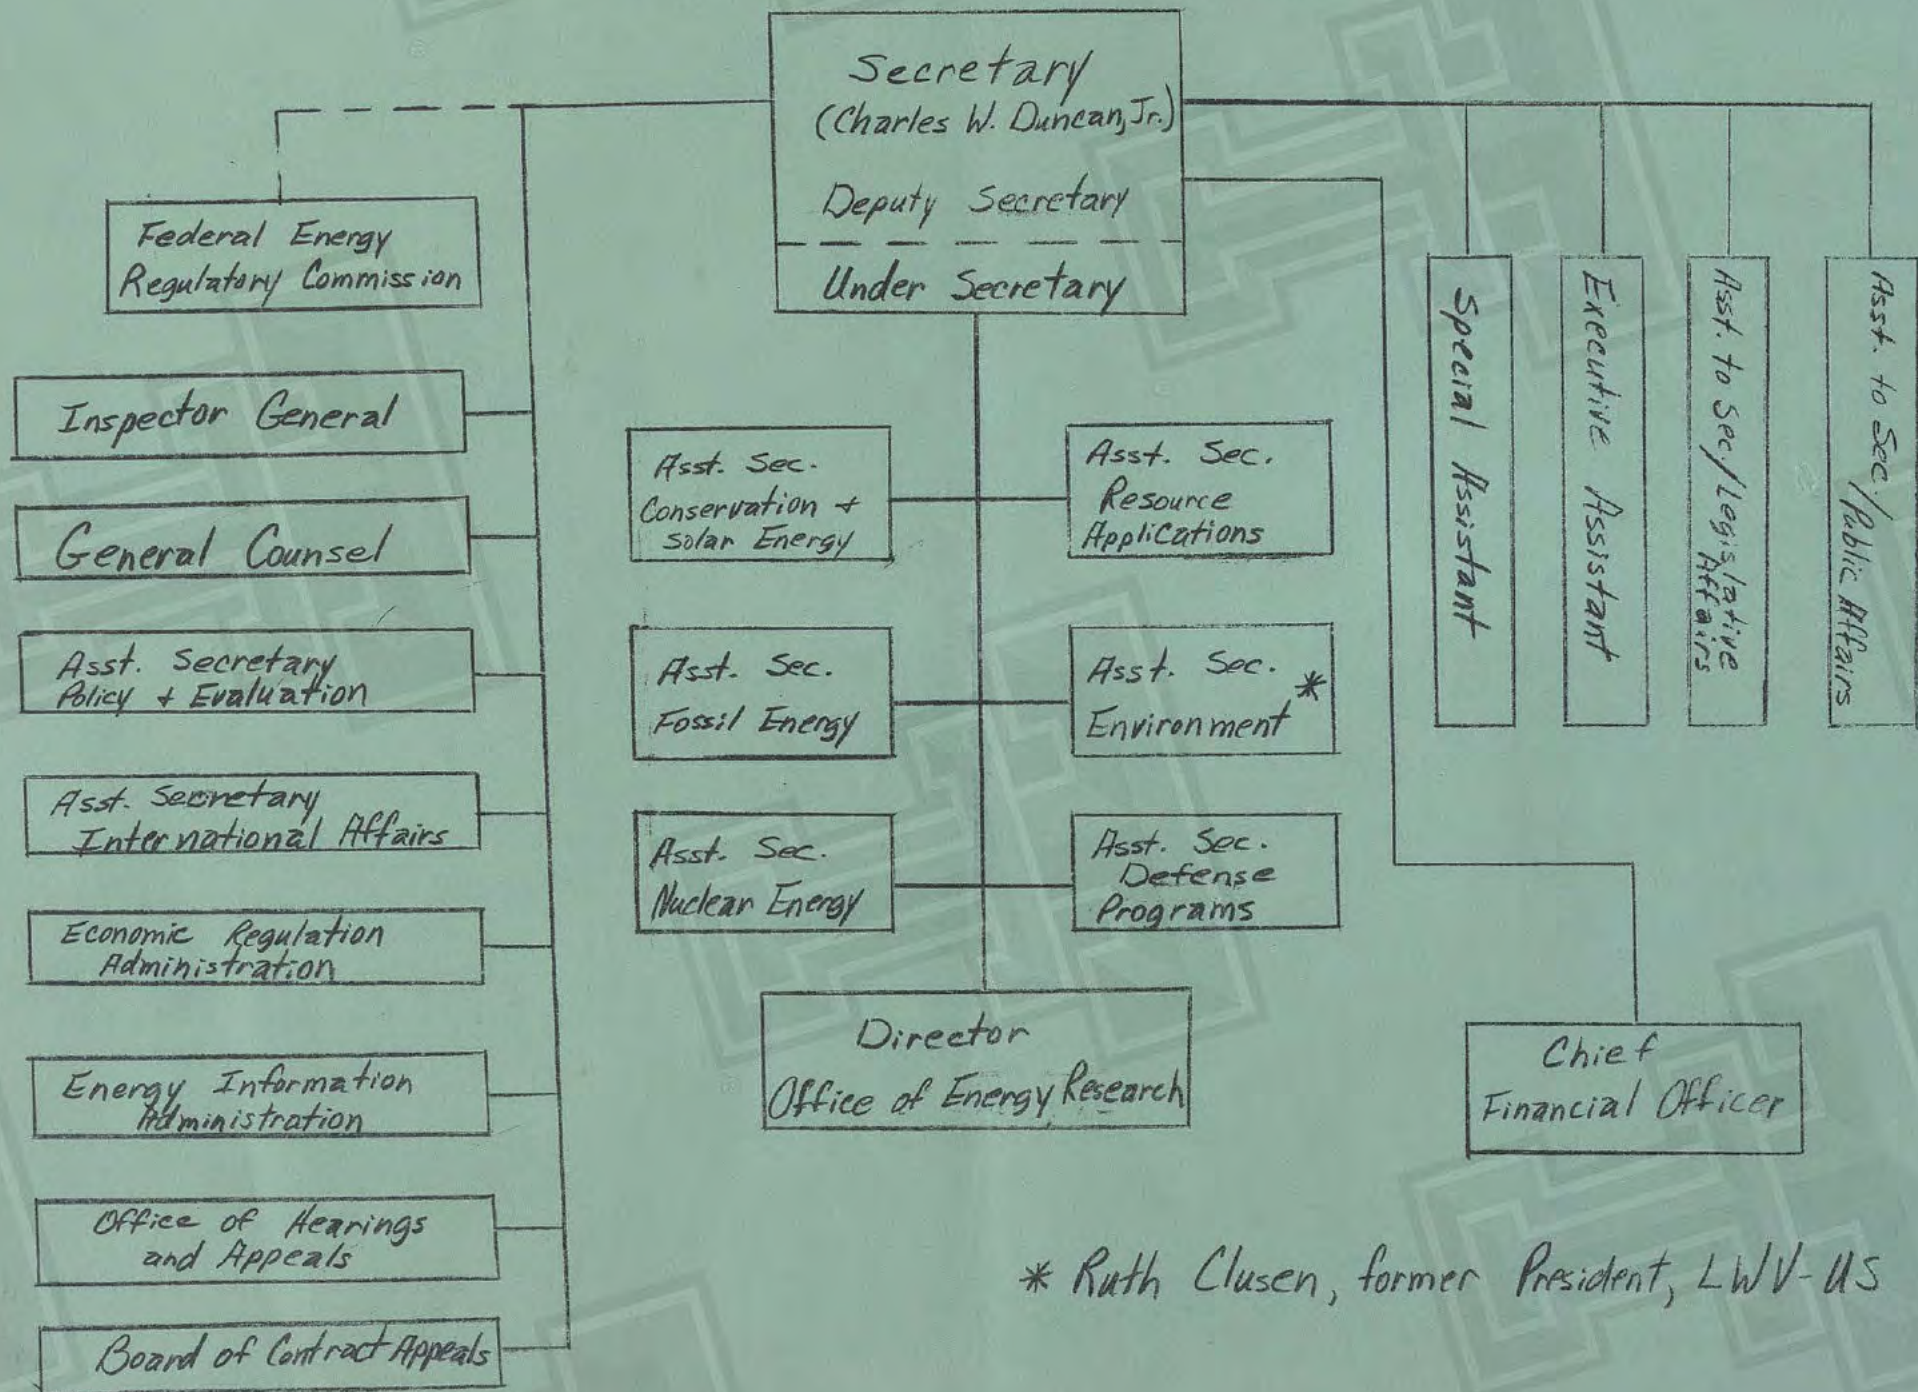 Secretary
(Charles W. Duncan, Jr.)
Deputy Secretary
Under Secretary
Federal Energy
Regulatory Commission
Inspector General
General Counsel
Asst. Secretary
Policy + Evaluation
Asst. Secretary
International Affairs
Economic Regulation
Administration
Energy Information
Administration
Office of Hearings
and Appeals
Board of Contract Appeals
Asst. Sec.
Conservation +
Solar Energy
Asst. Sec.
Resource
Applications
Asst. Sec.
Fossil Energy
Asst. Sec.
Environment *
Asst. Sec.
Nuclear Energy
Asst. Sec.
Defense
Programs
Director
Office of Energy Research
Special Assistant
Executive Assistant
Asst. to Sec./Legislative
Affairs
Asst. to Sec./Public Affairs
Chief
Financial Officer
* Ruth Clusen, former President, LWV-US